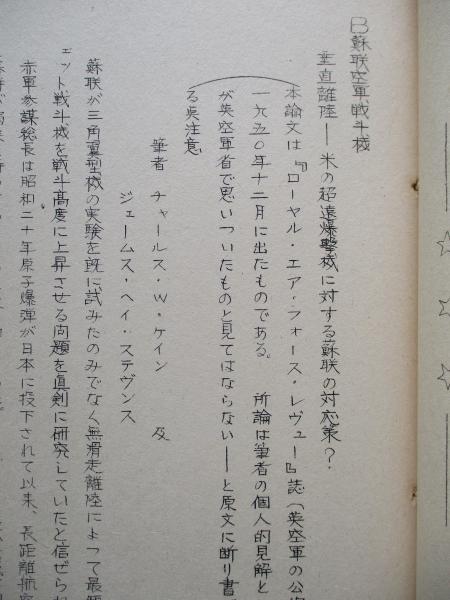 B蘇联空軍戦斗機
垂直離陸―米の超遠爆撃機に対する蘇联の対応策？
本論文は『ローヤル・エア・フォース・レヴュー』誌（英空軍の公
一九五〇年十二月に出たものである。　所論は筆者の個人的見解と
が英空軍省で思いついたものと見てはならない――と原文に断り書
る点注意
筆者　チャールス・W・ケイン　及
ジェームス・ヘイ・ステヴンス
蘇联が三角翼型機の実験を既に試みたのみでなく無滑走離陸によって最新
ェット戦斗機を戦斗高度に上昇させる問題を真剣に研究していたと信ぜられ
赤軍参謀総長は昭和二十年原子爆弾が日本に投下されて以来、長距離航空